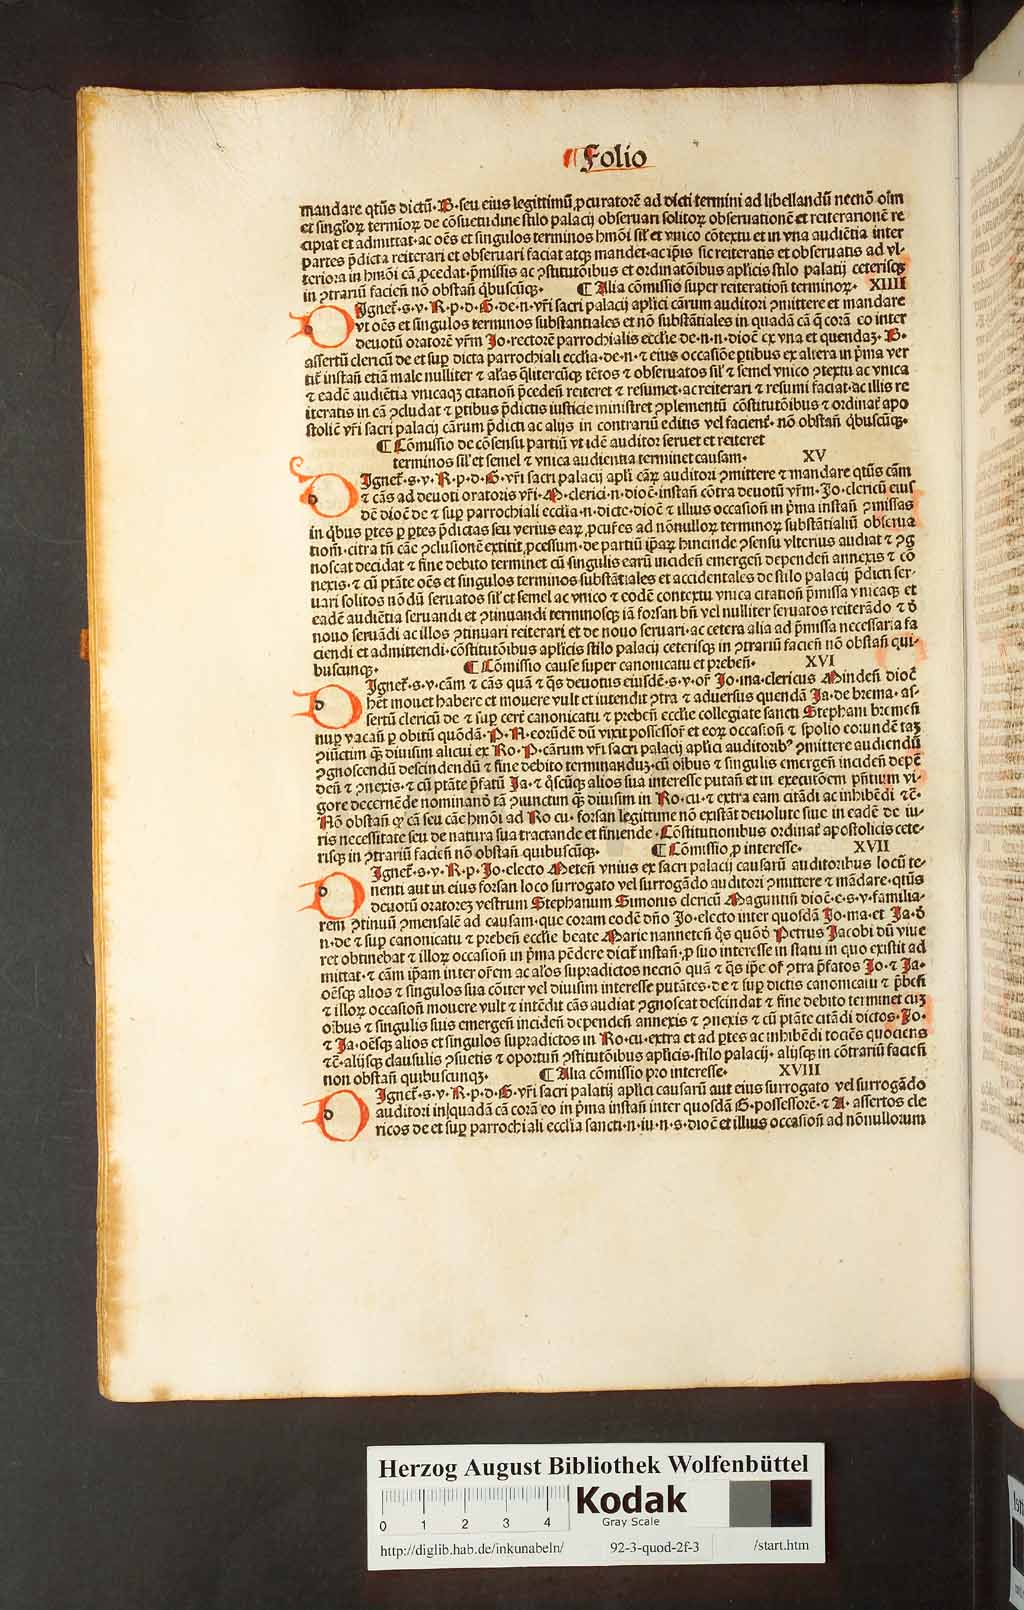 ¶ Folio
mandare qtūs dictū·B·seu eius legittimū ꝓcuratorē ad dicti termini ad libellandū necnō oīm
et singloꝝ termioꝝ de cōsuetudine stilo palacij obseruari solitoꝝ obseruationē et reiterarionē re
cipiat et admittat·ac oēs et singulos terminos hmōi sil̓ et vnico cōtextu et in vna audiētia inter
partes p̄dicta reiterari et obseruari faciat atqꝫ mandet·ac ip̄is sic reiteratis et obseruatis ad vl-
teriora in hmōi cā ꝓcedat·p̄missis ac ꝯstitutōibus et ordinatōibus apl̓icis stilo palatij ceterisqꝫ
in ꝯtrariū facien̄ nō obstan̄ q̄buscūqꝫ· ¶ Alia cōmissio super reiteration̄ terminoꝝ· XIIII
DIgnet̄·s·v·R·p·d·G·de·n·vr̄i sacri palacij apl̓ici cārum auditori ꝯmittere et mandare
vt oēs et singulos terminos substantiales et nō substātiales in quadā cā q̄ corā eo inter
deuotū oratorē vr̄m Jo·rectorē parrochialis eccl̓ie de·n·n·dioc̄ ex vna et quendaꝫ·B·
assertū clericū de et suꝑ dicta parrochiali eccl̓ia·de·n·⁊ eius occasiōe ꝑtibus ex altera in p̄ma ver
tit̄ instan̄ etiā male nulliter ⁊ al̓as q̄litercūqꝫ tētos ⁊ obseruatos sil̓ ⁊ semel vnico ꝯtextu ac vnica
⁊ eadē audiētia vnicaqꝫ citation̄ p̄ceden̄ reiteret ⁊ resumet·ac reiterari ⁊ resumi faciat·ac illis re
iteratis in cā ꝯcludat ⁊ ꝑtibus p̄dictis iusticie ministret ꝯplementū cōstitutōibus ⁊ ordinat̄ apo
stolic̄ vr̄i sacri palacij cārum p̄dicti ac alijs in contrariū editis vel facient̄· nō obstan̄ q̄buscūqꝫ·
¶ Cōmissio de cōsensu partiū vt idē auditor seruet et reiteret
terminos sil̓ et semel ⁊ vnica audientia terminet causam· XV
DIgnet̄·s·v·R·p·d·G·vr̄i sacri palacij apl̓i cāꝝ auditori ꝯmittere ⁊ mandare qtūs cām
⁊ cās ad deuoti oratoris vr̄i·P·clerici·n·dioc̄·instan̄ cōtra deuotū vr̄m·Jo·clericū eius
dē dioc̄ de ⁊ suꝑ parrochiali eccl̓ia·n·dicte·dioc̄ ⁊ illius occasion̄ in p̄ma instan̄ ꝯmissas
in q̄bus ꝑtes ꝑ ꝑtes p̄dictas seu verius eaꝝ ꝓcur̄es ad nōnulloꝝ terminoꝝ substātialiū obserua
tion̄·citra tn̄ cāe ꝯclusionē extitit ꝓcessum·de partiū ip̄aꝝ hincinde ꝯsensu vlterius audiat ⁊ ꝯg
noscat decidat ⁊ fine debito terminet cū singulis earū inciden̄ emergen̄ dependen̄ annexis ⁊ cō
nexis·⁊ cū ptāte oēs et singulos terminos substātiales et accidentales de stilo palacij p̄dicti ser-
uari solitos nō dū seruatos sil̓ et semel ac vnico ⁊ eodē contextu vnica citation̄ p̄missa vnicaqꝫ et
eadē audiētia seruandi et ꝯtinuandi terminosqꝫ iā forsan bn̄ vel nulliter seruatos reiterādo ⁊ d̄
nouo seruādi ac illos ꝯtinuari reiterari et de nouo seruari·ac cetera alia ad p̄missa necessaria fa
ciendi et admittendi·cōstitutōibus apl̓icis stilo palacij ceterisqꝫ in ꝯtrariū facien̄ nō obstan̄ qui-
buscunqꝫ· ¶ Cōmissio cause super canonicatu et p̄eben̄· XVI
DIgnet̄·s·v·cām ⁊ cās quā ⁊ q̄s deuotus eiusdē·s·v·or̄ Jo·ma·clericus Minden̄ dioc̄
het̄ mouet habere et mouere vult et intendit ꝯtra ⁊ aduersus quendā Ja·de brema·as-
sertū clericū de ⁊ suꝑ cert̄ canonicatu ⁊ p̄eben̄ eccl̓ie collegiate sancti Stephani bremen̄
nuꝑ vacan̄ ꝑ obitū quōdā·P·N·eorūdē dū vixit possessor̄ et eoꝝ occasion̄ ⁊ spolio eorundē taꝫ
ꝯiūctim qꝫ diuisim alicui ex Ro·P·cārum vr̄i sacri palacij apl̓ici auditoribꝰ ꝯmittere audiendū
ꝯgnoscendū descindendū ⁊ fine debito terminanduꝫ·cū oībus ⁊ singulis emergen̄ inciden̄ depē
den̄ ⁊ ꝯnexis·⁊ cū ptāte p̄fatū Ja·⁊ q̄scūqꝫ alios sua interesse putan̄ et in executōem pn̄tium vi-
gore decernēde nominanō tā ꝯiunctim qꝫ diuisim in Ro·cu·⁊ extra eam citādi ac inhibēdi ⁊ē·
Nō obstan̄ qꝫ cā seu cāe hmōi ad Ro cu· forsan legittime nō existāt deuolute siue in eadē de iu-
ris necessitate seu de natura sua tractande et finiende·Cōstitutionibus ordinat̄ apostolicis cete-
risqꝫ in ꝯtrariū facien̄ nō obstan̄ quibuscūqꝫ· ¶ Cōmissio ꝓ interesse· XVII
DIgnet̄·s·v·R·p·Jo·electo Meten̄ vnius ex sacri palacij causarū auditoribus locū te-
nenti aut in eius forsan loco surrogato vel surrogādo auditori ꝯmittere ⁊ mādare·qtūs
deuotū oratoreꝫ vestrum Stephanum Simonis clericū Maguntin̄ dioc̄·e·s·v·familia-
rem ꝯtinuū ꝯmensalē ad causam·que coram eodē dn̄o Jo·electo inter quosdā Jo·ma·et Ja·d̄
n·de ⁊ sup canonicatu ⁊ p̄eben̄ eccl̓ie beate Marie nanneten̄ q̄s quōd̄ Petrus Jacobi dū viue
ret obtinebat ⁊ illoꝝ occasion̄ in p̄ma pēdere dicit̄ instan̄·ꝓ suo interesse in statu in quo existit ad
mittat·⁊ cām ip̄am inter or̄em ac al̓os supradictos necnō quā ⁊ q̄s ip̄e or̄ ꝯtra p̄fatos Jo·⁊ Ja·
oēsqꝫ alios ⁊ singulos sua cōiter vel diuisim interesse putātes·de ⁊ suꝑ dictis canonicatu ⁊ p̄ben̄
⁊ illoꝝ occasion̄ mouere vult ⁊ intēdit cās audiat ꝯgnoscat descindat ⁊ fine debito terminet cuꝫ
oībus ⁊ singulis suis emergen̄ inciden̄ dependen̄ annexis ⁊ ꝯnexis ⁊ cū ptāte citādi dictos·Jo·
⁊ Ja·oēsqꝫ alios et singulos supradictos in Ro·cu·extra et ad ꝑtes ac inhibēdi tociēs quociens
⁊ē·alijsqꝫ clausulis ꝯsuetis ⁊ oportun̄ ꝯstitutōibus apl̓icis·stilo palacij·alijsqꝫ in cōtrariū facien̄
non obstan̄ quibuscunqꝫ· ¶ Alia cōmissio pro interesse· XVIII
DIgnet̄·s·v·R·p·d·G·vr̄i sacri palatij apl̓ici causarū aut eius surrogato vel surrogādo
auditori in quadā cā corā eo in p̄ma instan̄ inter quosdā G·possessorē·⁊ A· assertos cle
ricos de et suꝑ parrochiali eccl̓ia sancti·n·iu·n·s·dioc̄ et illius occasion̄ ad nōnullorum
Herzog August Bibliothek Wolfenbüttel
0 1 2 3 4
Kodak
Gray Scale
http://diglib.hab.de/inkunabeln/ 92-3-quod-2f-3 /start.htm